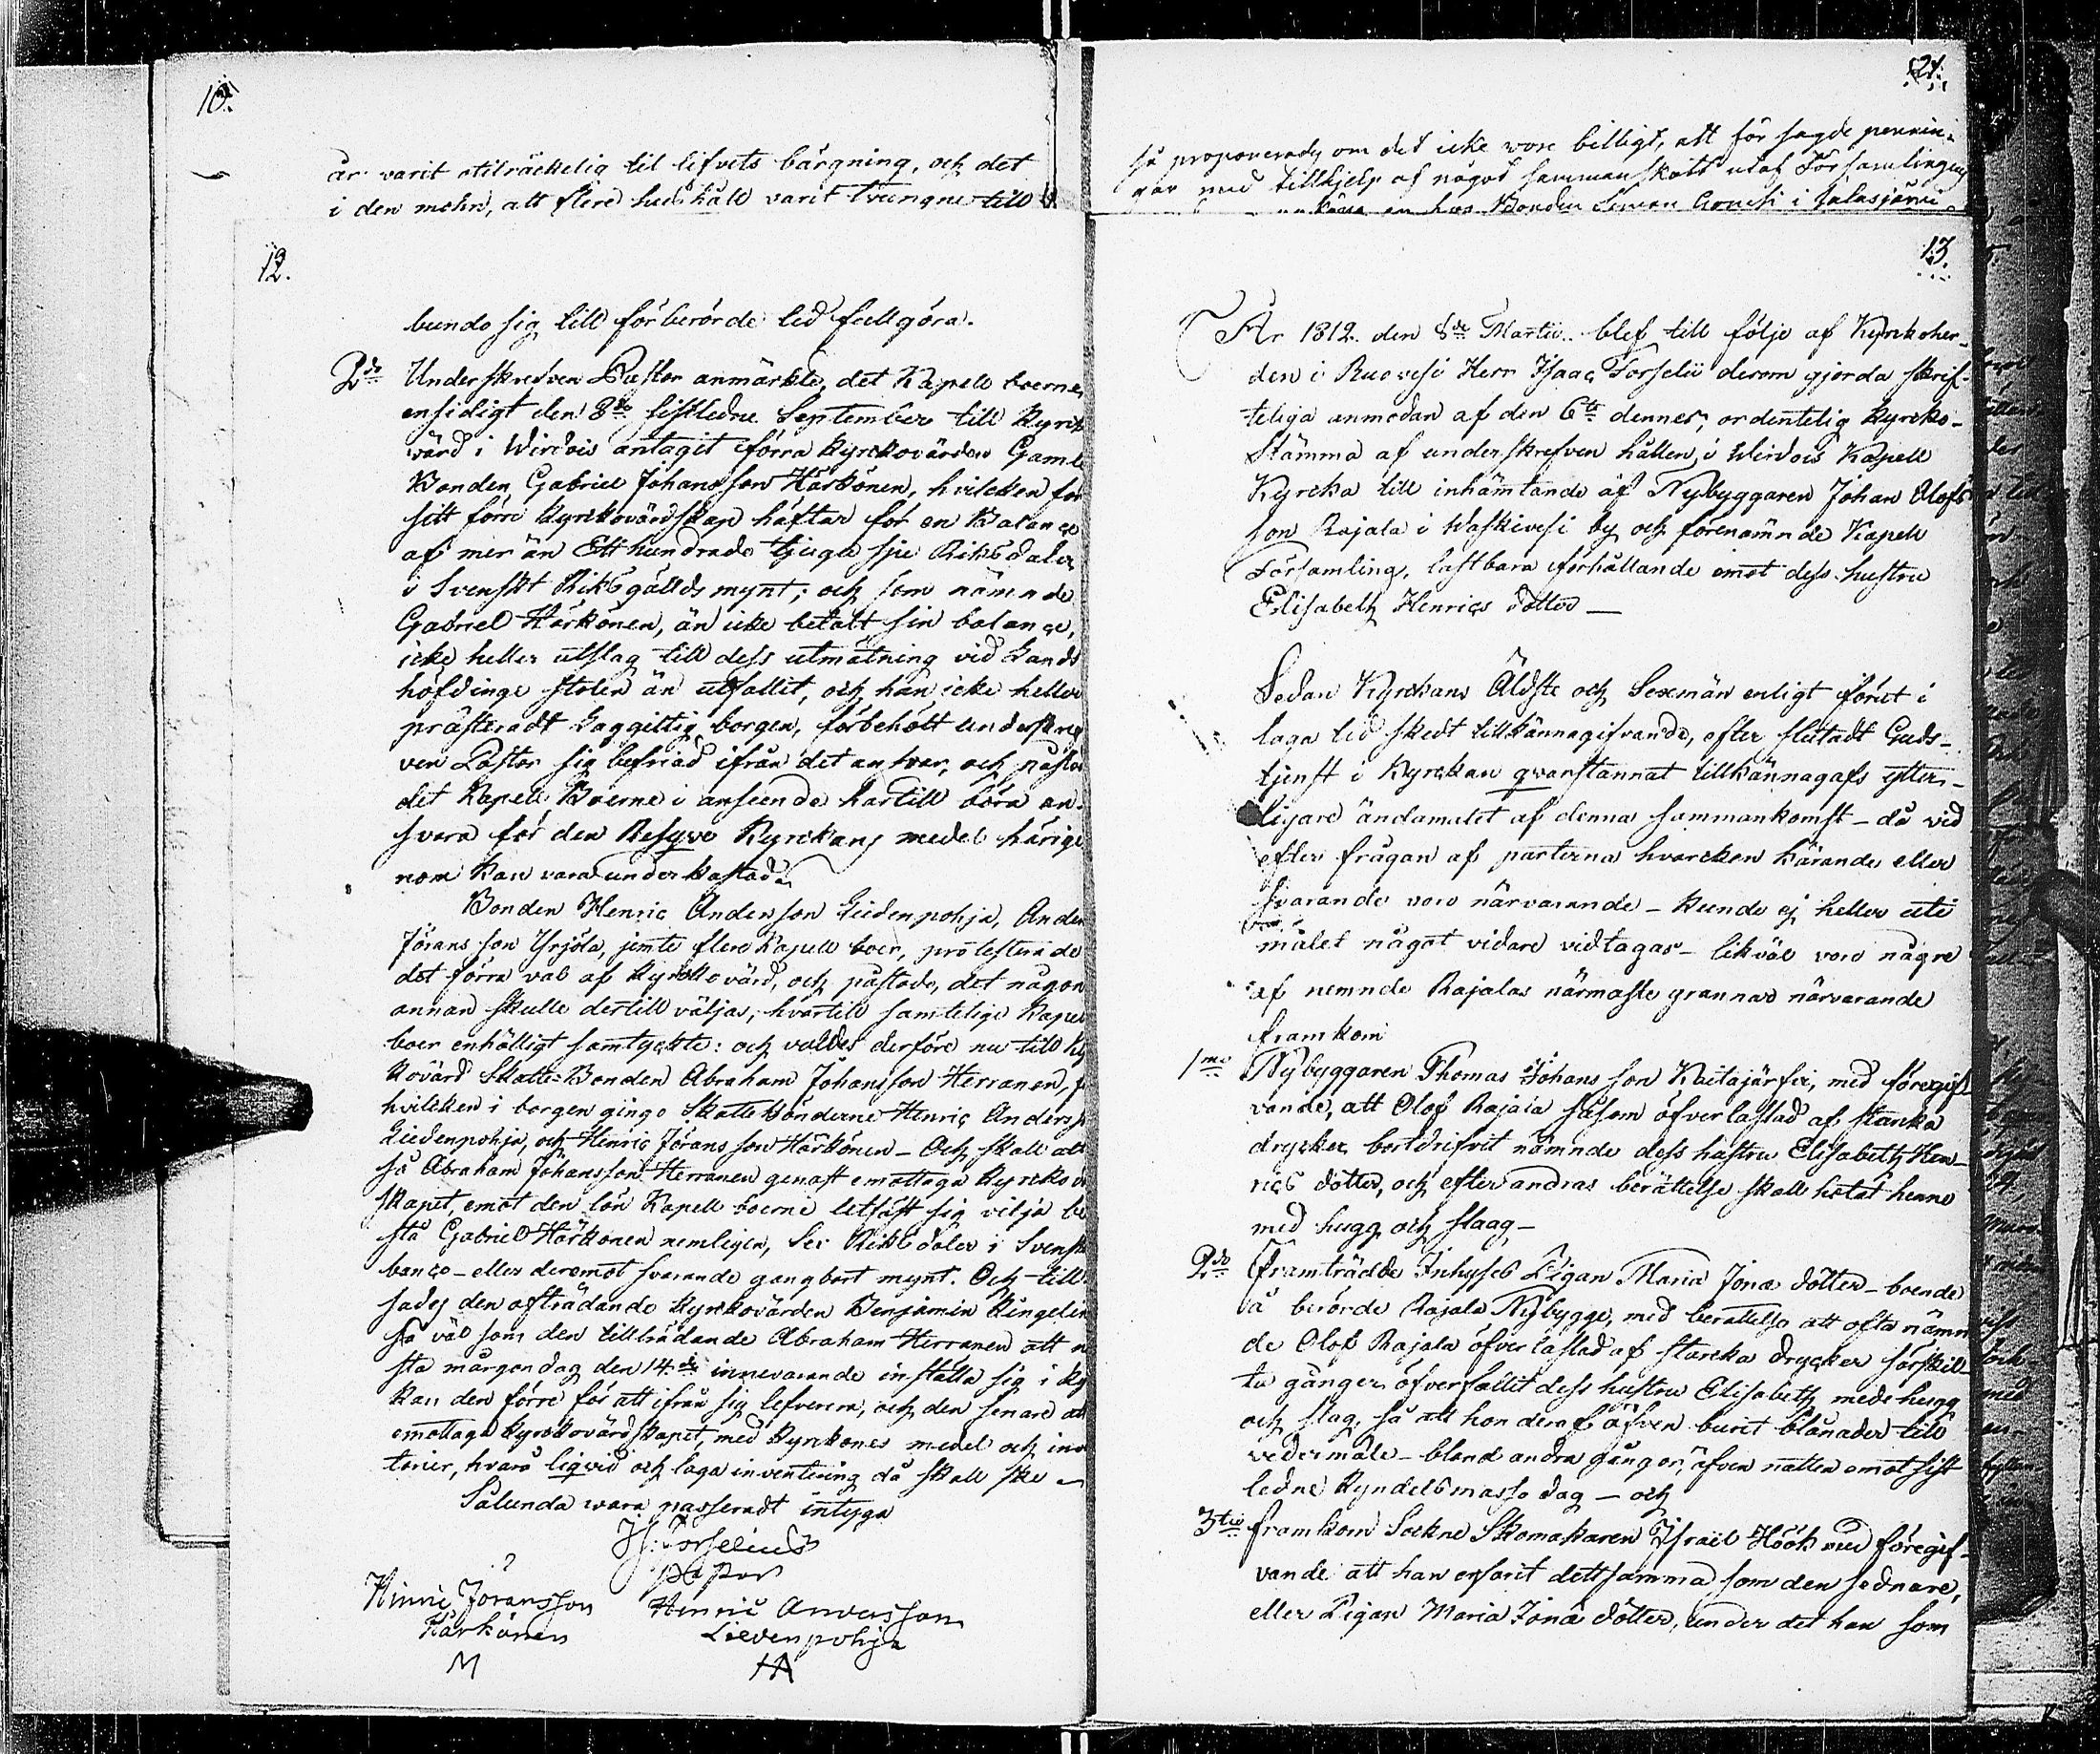 10.
är varit otilräckelig til lifvets bärgning, och det
i den mohn, att flere hushåll varit tvungne till
12.
bundo sig till förberörde tid fullgöra.
2do Underskrefven Pastor anmärkte, det Kapell boerne
ensidigt den 8de sistledne September till Kyrko
värd i Wirdois antagit förra Kyrkovärden Gamle
Bonden Gabriel Johansson Härkönen, hvilcken för
sitt förre Kyrkovärdskap häftar för en Balance
af mer än Ett hundrade tjugu sju Riksdaler
i Svenskt Riksgälds mynt; och som nämnde
Gabriel Härkönen, än icke betalt sin balance,
icke heller utslag till dess utmätning vid Lands
höfdinge stolen än utfallit, och han icke heller
præsteradt Laggiltig borgen, förbehölt underskref
ven Pastor sig befriad ifrån det ansvar, och påstod
det Kapell Boerne i anseende härtill böra an-
svara för den Resque Kyrckans medel härige
nom kan vara underkastad.
Bonden Henric Andersson Liedenpohja, Anders
Jöransson Yrjölä, jemte flere Kapell boer, protesterade
det förra val af Kyrkovärd, och påstode, det någon
annan skulle dertill väljas, hvartill samtelige Kapell
boer enhälligt samtyckte: och valdes derföre nu till Ky
kovärd Skatte-Bonden Abraham Johansson Herranen, f
hvilcken i borgen gingo Skatte bönderne Henric Anders
Liedenpohja, och Henric Jöransson Härkönen - Och skall alt
så Abraham Johansson Herranen genast emottaga Kyrckov
skapet, emot den lön Kapell boerne låtsatt sig vilja be
stå Gabriel Härkönen nemligen, Sex Riksdaler i Svensk
banco - eller deremot svarande gangbart mynt. Och till
sades den afträdande Kyrkovärden Benjamin Ringelin
så väl som den tillträdande Abraham Herranen att n
sta mårgondag den 14de innevarande inställa sig i Ky
kan den förre för att ifrån sig lefverera, och den senare att
emottaga Kyrkovärdskapet, med Kyrkones medel och inv
tarier, hvars liqvid och laga inventering då skall ske
Sålunda wara passeradt intyga
Is: Forselius
Pastor
Hinric Jöransson Henric Andersson
Härkönen Liedenpohja
M HA
21.
så proponerades om det icke vore billigt, att för sagde pennin-
gar med tillhjelp af något sammanskått utaf Församlingen
hos Bonden Simon i Jalasjärvi
13.
År 1812. den 8de Martii. blef till följe af Kyrkoher-
den i Ruovesi Herr Isaac Forselii derom gjorda skrif-
teliga anmodan af den 6te dennes, ordentelig Kyrcko-
Stämma af underskrefven hållen, i Wirdois Kapell
Kyrcka till inhämtande af Nybyggaren Johan Olofs
son Rajala i Waskivesi by och förenämnde Kapell
Församling, lastbara förhållande emot dess hustru
Elisabeth Henrics dotter -
Sedan Kyrckans Äldste och Sexmän enligt förut i
laga tid skedt tillkännagifvande, efter slutadt Guds-
tjenst i Kyrckan qvarstannat tillkännagafs ytter-
ligare ändamålet af denna sammankomst - då vid
efter frågan af parterna hvarcken Kärande eller
Svarande vore närvarande - kunde ej heller uti
målet något vidare vidtagas - likväl vore några
af nemnde Rajalas närmaste grannar närvarande
framkom
1mo Nybyggaren Thomas Johansson Kaitajärfvi, med föregif
vande, att Olof Rajala såsom öfverlastad af starka
drycker bortdrifvit nämnde dess hustru Elisabeth Hen-
rics dotter, och efter andras berättelse skall hotat henne
med hugg och slaag -
2do Framträdde Inhyses Pigan Maria Jonæ dotter - boende
å berörde Rajala Nybygge, med berättelse att ofta nämn
de Olof Rajala öfverlastad af starcka drycker särskil-
ta gånger öfverfallit dess hustru Elisabeth med hugg
och slag, så att hon deraf äfven burit blånader till
vedermäle - bland andra gångor, äfven natten emot sist
ledne Kyndelsmässo dag - och
3tio framkom Sockne Skomakaren Israel Höök med föregif-
vande att han erfarit dettsamma som den sednare,
eller Pigan Maria Jonæ dotter, under det han som